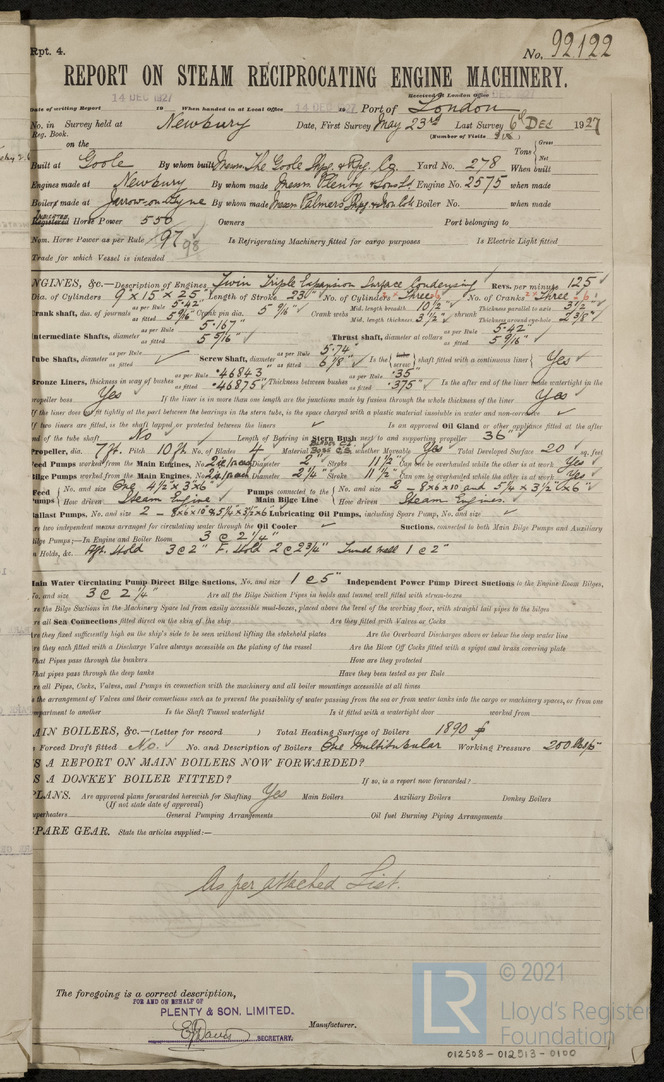 Rpt. 4.
No. 92122
REPORT ON STEAM RECIPROCATING ENGINE MACHINERY.
Received at London Office
Date of writing Report 14 DEC 1927 19 When handed in at Local Office 14 DEC 1927 19 Port of London
No. in Survey held at Newbury Date, First Survey May 23rd Last Survey 6th DEC 1927
Reg. Book. (Number of Visits
on the Tons { Gross Net
Built at Goole By whom built Messrs The Goole Shpg. & Rpg. Co. Yard No. 278 When built
Engines made at Newbury By whom made Messrs Plenty & Son Ld Engine No. 2575 when made
Boilers made at Jarrow-on-Tyne By whom made Messrs Palmers Boiler No. when made
Registered Horse Power 550 Owners Port belonging to
Nom. Horse Power as per Rule 97 98 Is Refrigerating Machinery fitted for cargo purposes Is Electric Light fitted
Trade for which Vessel is intended
NGINES, &c.—Description of Engines Twin Triple Expansion Surface Condensing Revs. per minute 125
Dia. of Cylinders 9 x 15 x 25" Length of Stroke No. of Cylinders Three No. of Cranks Three
Crank shaft, dia. of journals as per Rule 5.42" as fitted 5 9/16" Crank pin dia. 5 9/16" Crank webs Mid. length breadth 10 1/2" Mid. length thickness 3 1/2" shrunk Thickness parallel to axis 3 1/2" Thickness around eye-hole 2 3/8"
Intermediate Shafts, diameter as per Rule 5.167" as fitted 5 9/16" Thrust shaft, diameter at collars as per Rule 5.42" as fitted 5 9/16"
Tube Shafts, diameter as per Rule as fitted Screw Shaft, diameter as per Rule 5.74" as fitted 6 1/8" Is the { tube screw } shaft fitted with a continuous liner { Yes
Bronze Liners, thickness in way of bushes as per Rule .46843 as fitted .46875" Thickness between bushes as per Rule .35" as fitted .375" Is the after end of the liner made watertight in the
propeller boss Yes If the liner is in more than one length are the junctions made by fusion through the whole thickness of the liner Yes
If the liner does not fit tightly at the part between the bearings in the stern tube, is the space charged with a plastic material insoluble in water and non-corrosive
If two liners are fitted, is the shaft lapped or protected between the liners Is an approved Oil Gland or other appliance fitted at the after
end of the tube shaft No Length of Bearing in Stern Bush next to and supporting propeller 36"
Propeller, dia. 7 ft. Pitch 10 ft. No. of Blades 4 Material whether Moveable Yes Total Developed Surface 20 sq. feet
Feed Pumps worked from the Main Engines, No. Diameter 2" Stroke 11 1/2" Can one be overhauled while the other is at work Yes
Bilge Pumps worked from the Main Engines, No. Diameter 2 1/4" Stroke 11 1/2" Can one be overhauled while the other is at work Yes
Feed Pumps { No. and size One 4 1/2 x 3" x 6" Pumps connected to the Main Bilge Line { No. and size 2 - 8 x 6 x 10 and 5 1/4 x 3 1/2" x 6"
How driven Steam Engine How driven Steam Engines.
Ballast Pumps, No. and size 2 - 8 x 6 x 10 & 5 1/4 x 3 1/2 x 6" Lubricating Oil Pumps, including Spare Pump, No. and size
Are two independent means arranged for circulating water through the Oil Cooler Suctions, connected to both Main Bilge Pumps and Auxiliary
Bilge Pumps;—In Engine and Boiler Room 3 @ 2 1/4"
In Holds, &c. Aft. Hold 3 @ 2" F. Hold 2 @ 2 3/4" Tunnel Well 1 @ 2"
Main Water Circulating Pump Direct Bilge Suctions, No. and size 1 @ 5" Independent Power Pump Direct Suctions to the Engine Room Bilges,
No. and size 3 @ 2 1/4" Are all the Bilge Suction Pipes in holds and tunnel well fitted with strum-boxes
Are the Bilge Suctions in the Machinery Space led from easily accessible mud-boxes, placed above the level of the working floor, with straight tail pipes to the bilges
Are all Sea Connections fitted direct on the skin of the ship Are they fitted with Valves or Cocks
Are they fixed sufficiently high on the ship's side to be seen without lifting the stokehold plates Are the Overboard Discharges above or below the deep water line
Are they each fitted with a Discharge Valve always accessible on the plating of the vessel Are the Blow Off Cocks fitted with a spigot and brass covering plate
What Pipes pass through the bunkers How are they protected
What pipes pass through the deep tanks Have they been tested as per Rule
Are all Pipes, Cocks, Valves, and Pumps in connection with the machinery and all boiler mountings accessible at all times
Is the arrangement of Valves and their connections such as to prevent the possibility of water passing from the sea or from water tanks into the cargo or machinery spaces, or from one
compartment to another Is the Shaft Tunnel watertight Is it fitted with a watertight door worked from
AIN BOILERS, &c.—(Letter for record ) Total Heating Surface of Boilers 1890
Is Forced Draft fitted No. No. and Description of Boilers One multitubular Working Pressure 200 lbs
S A REPORT ON MAIN BOILERS NOW FORWARDED?
S A DONKEY BOILER FITTED? If so, is a report now forwarded?
PLANS. Are approved plans forwarded herewith for Shafting Yes Main Boilers Auxiliary Boilers Donkey Boilers
(If not state date of approval)
uperheaters General Pumping Arrangements Oil fuel Burning Piping Arrangements
SPARE GEAR. State the articles supplied:—
As per attached List.
The foregoing is a correct description,
FOR AND ON BEHALF OF
PLENTY & SON, LIMITED.
Manufacturer.
SECRETARY.
LR © 2021
Lloyd's Register
Foundation
012508-012513-0100